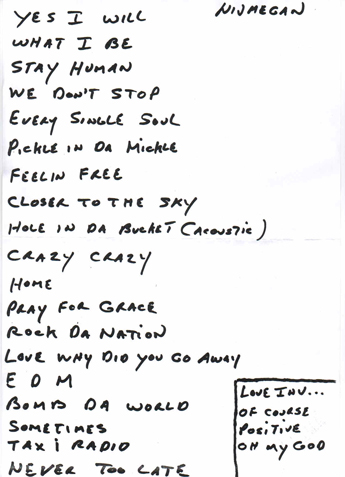 NIJMEGAN
YES I WILL
WHAT I BE
STAY HUMAN
WE DON'T STOP
EVERY SINGLE SOUL
PICKLE IN DA MICKLE
FEELIN FREE
CLOSER TO THE SKY
HOLE IN DA BUCKET (ACOUSTIC)
CRAZY CRAZY
HOME
PRAY FOR GRACE
ROCK DA NATION
LOVE WHY DID YOU GO AWAY
E D M
BOMB DA WORLD
SOMETIMES
TAXI RADIO
NEVER TOO LATE
LOVE INV...
OF COURSE
POSITIVE
OH MY GOD